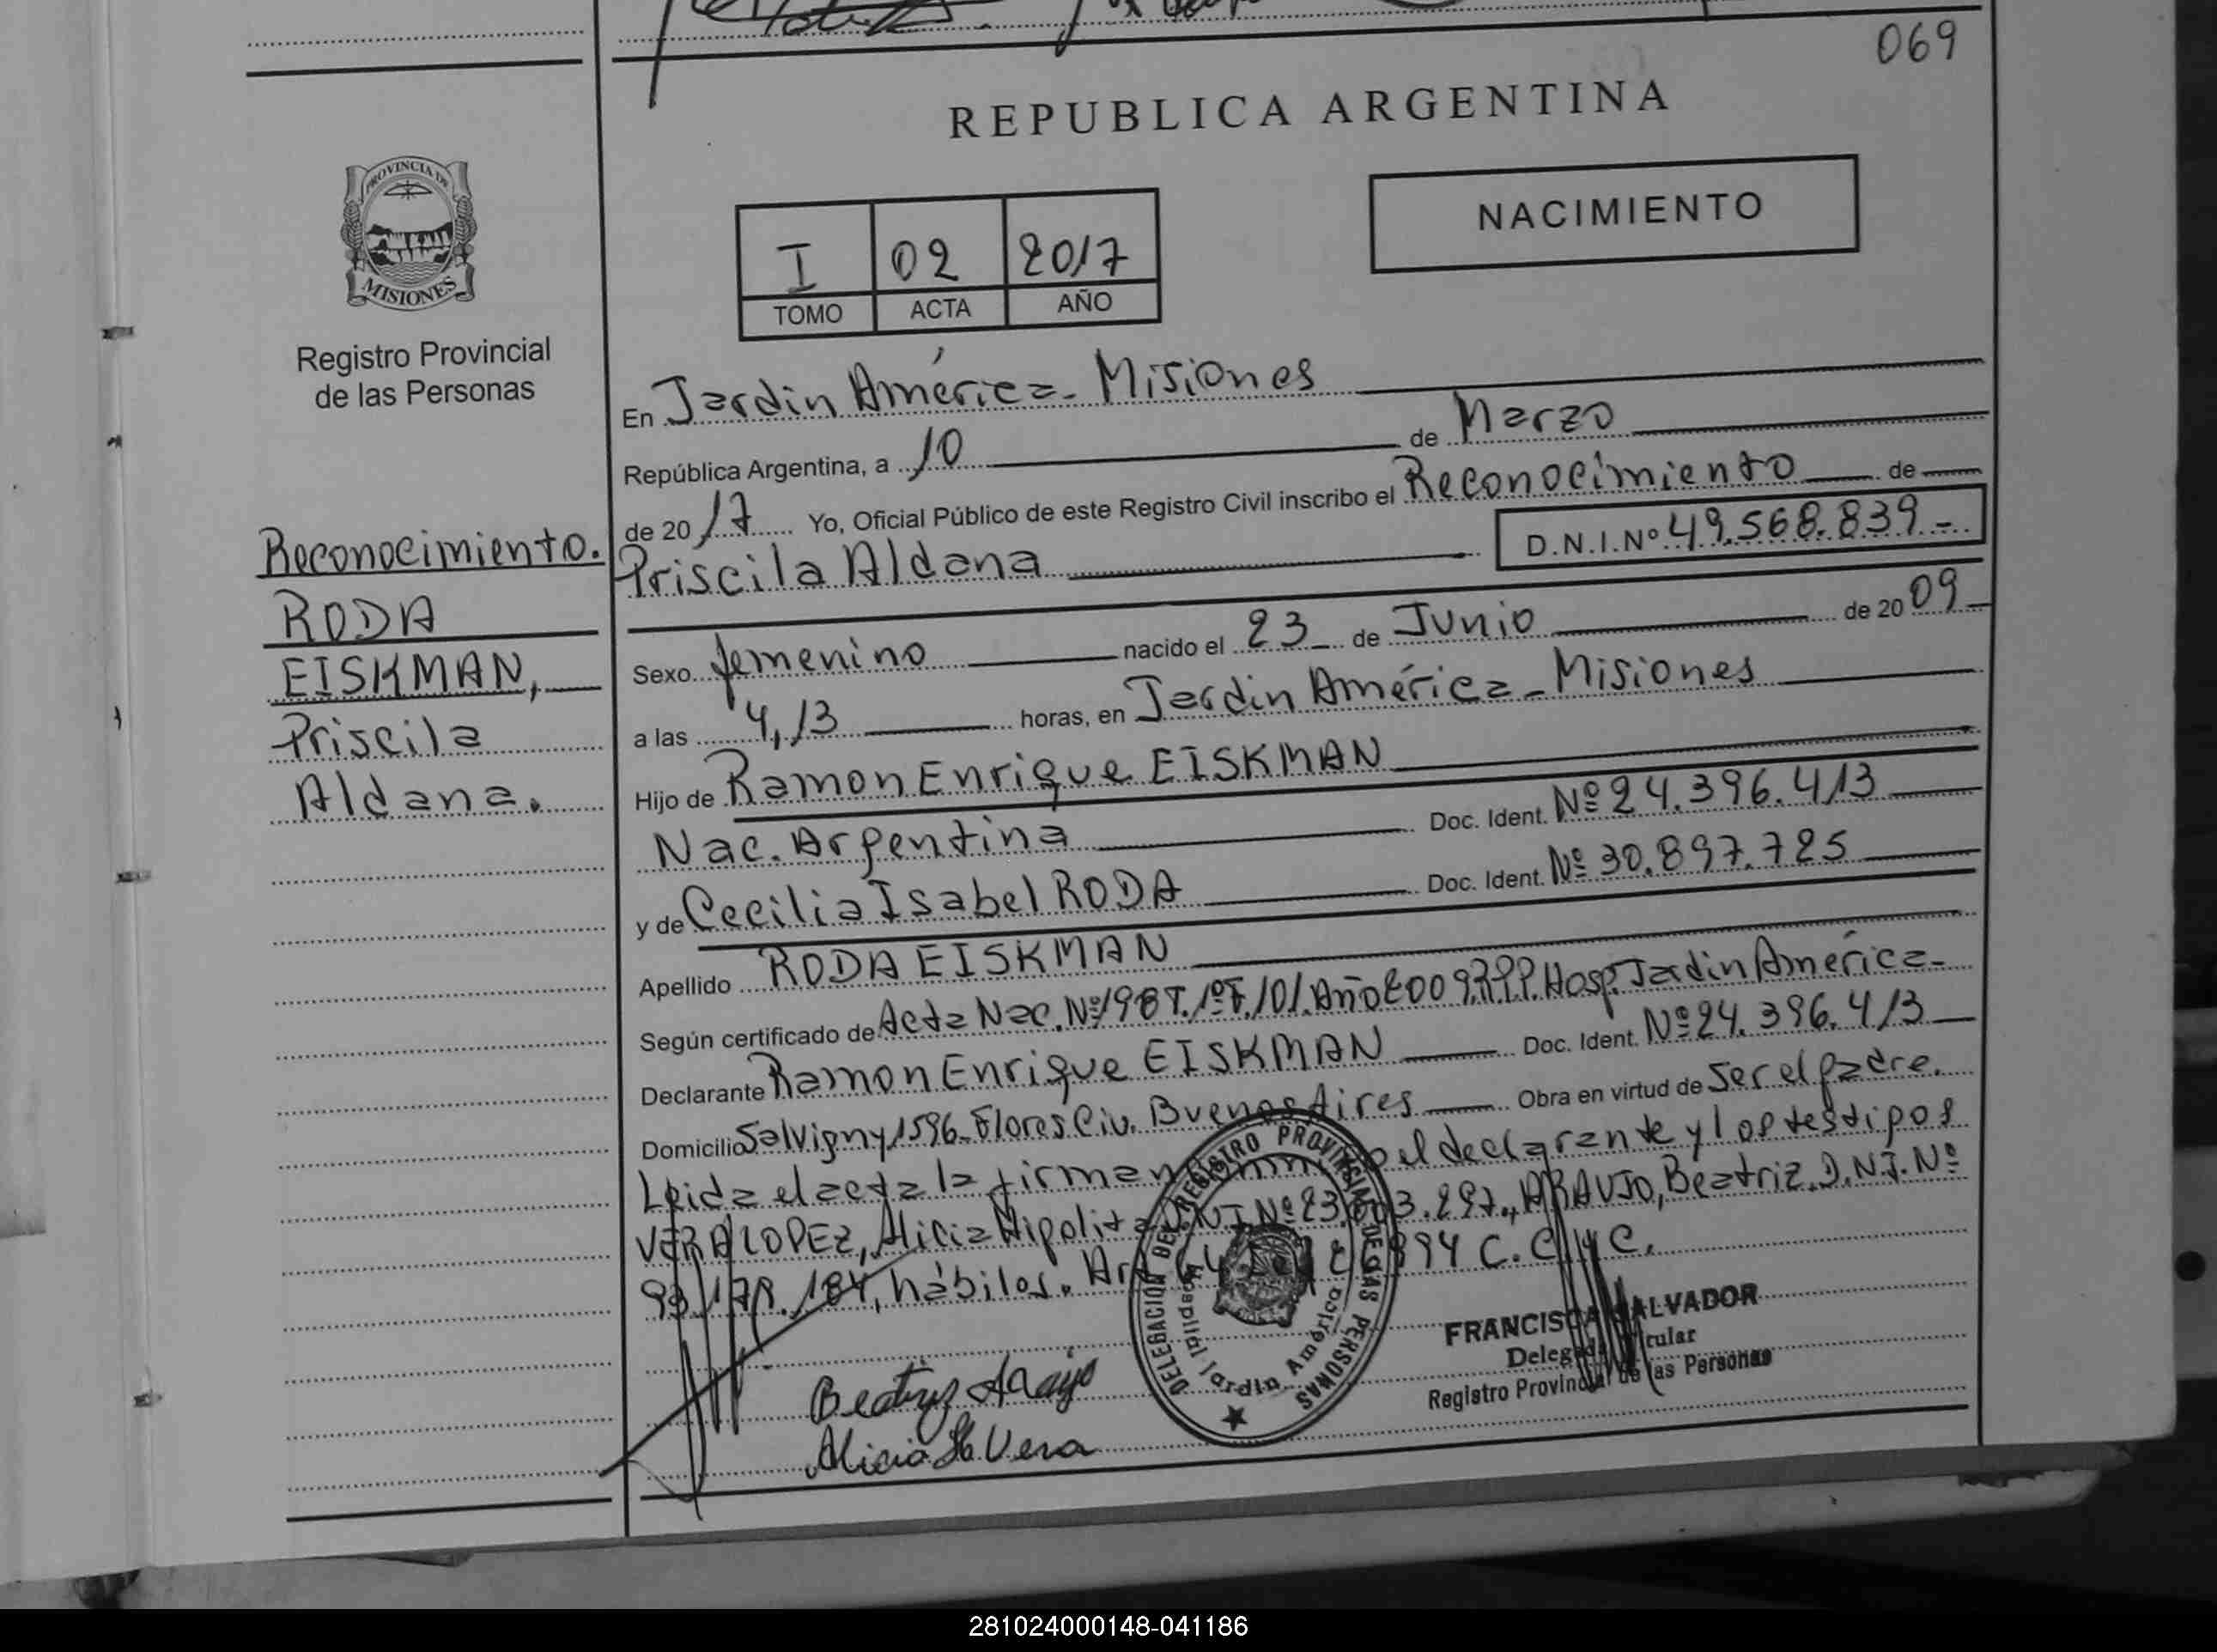 069
REPUBLICA ARGENTINA
PROVINCIA DE
MISIONES
NACIMIENTO
I 02 2017
TOMO ACTA AÑO
Registro Provincial
de las Personas
Reconocimiento.
RODA
EISKMAN,
Priscila
Aldana.
En Jardin América - Misiones
República Argentina, a 10 de Marzo
de 2017 Yo, Oficial Público de este Registro Civil inscribo el Reconocimiento de
Priscila Aldana D.N.I.Nº 49.568.839-
Sexo femenino nacido el 23 de Junio de 2009
a las 4,13 horas, en Jardin América - Misiones
Hijo de Ramon Enrique EISKMAN
Nac. Argentina Doc. Ident. Nº 24.396.413
y de Cecilia Isabel RODA Doc. Ident. Nº 30.897.725
Apellido RODA EISKMAN
Según certificado de Acta Nac. Nº198 T.1º F.101. Año 2009 R.P.P. Hosp. Jardin América-
Declarante Ramon Enrique EISKMAN Doc. Ident. Nº 24.396.413
Domicilio Salvigny 1596- Flores Ciu. Buenos Aires Obra en virtud de Ser el padre.
Leida el acta la firman el declarante y los testigos
VERA LOPEZ, Alicia Hipolita D.N.I. Nº 23. 3.297., ARAUJO, Beatriz. D.N.I. Nº
93.178.184, hábiles. Art. 94 C.C. y C.
DELEGACION DEL REGISTRO PROVINCIAL DE LAS PERSONAS
Hospital Jardín América
FRANCISCA SALVADOR
Delegada Titular
Registro Provincial de las Personas
Beatriz Araujo
Alicia H. Vera
281024000148-041186